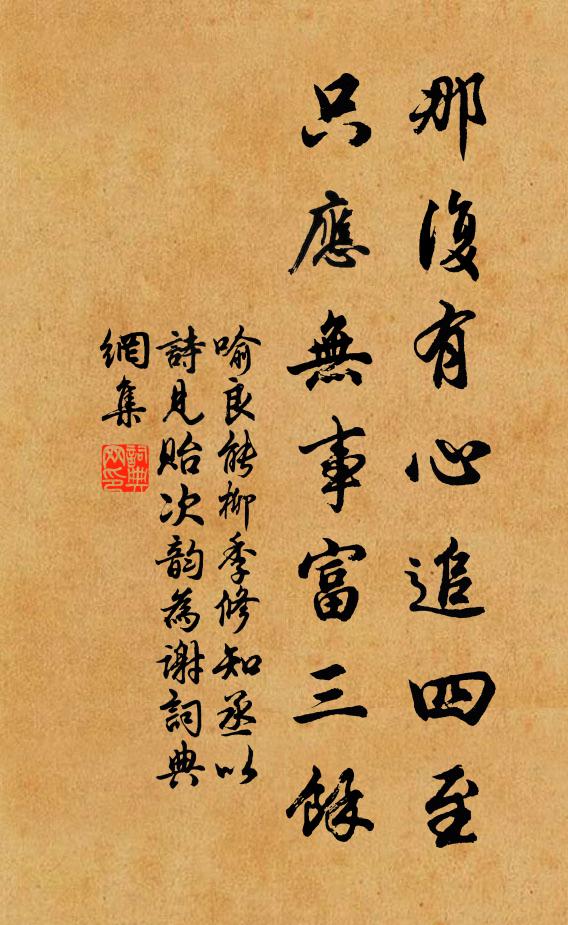 那復有心追四至
只應無事富三餘
喻良能柳季修知丞以
詩見貽次韵為谢詞典
網集
詞典
网印